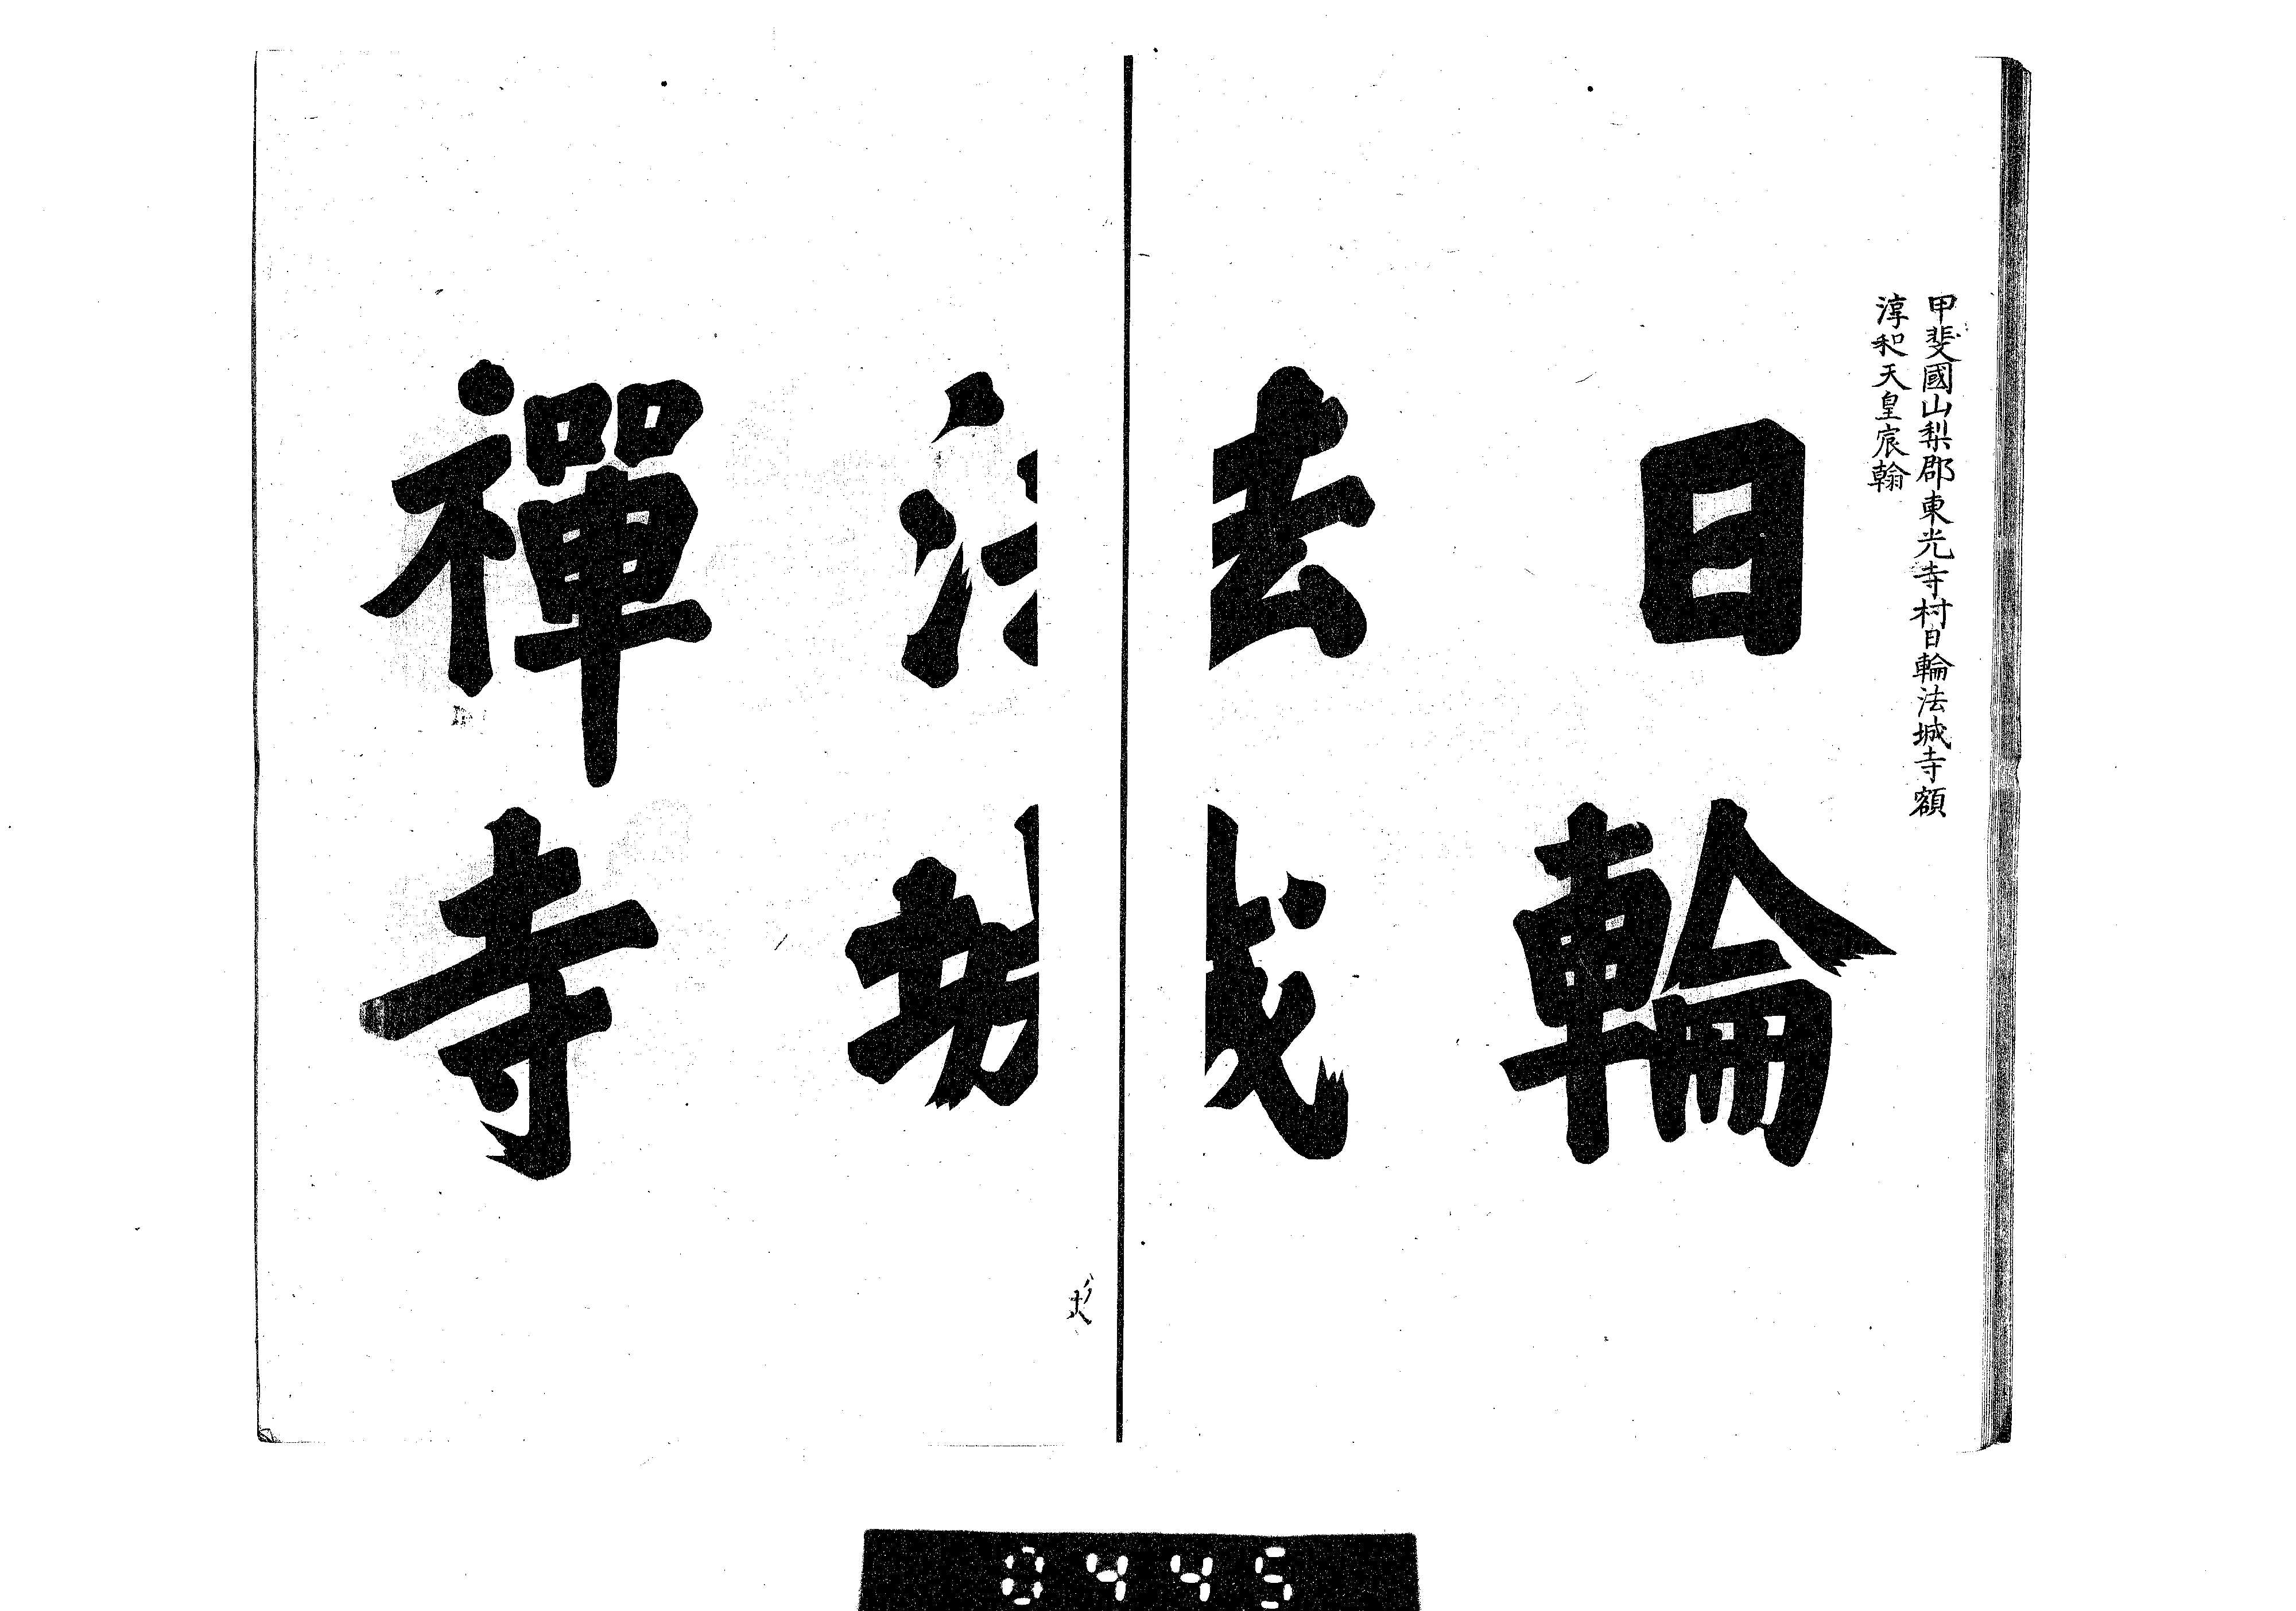 甲斐國山梨郡東光寺村日輪法城寺額
淳和天皇宸翰
日輪
法城
禪寺
0445